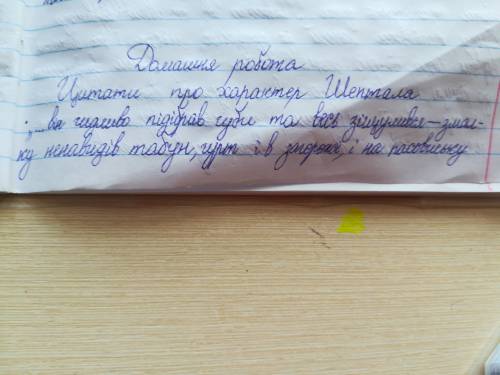 Домашня робота
Цитати про характер Шептала
"...він гидливо підібрав губи та весь зіщулився – змал-
ку ненавидів табун, гурт і в загороні, і на пасовиську